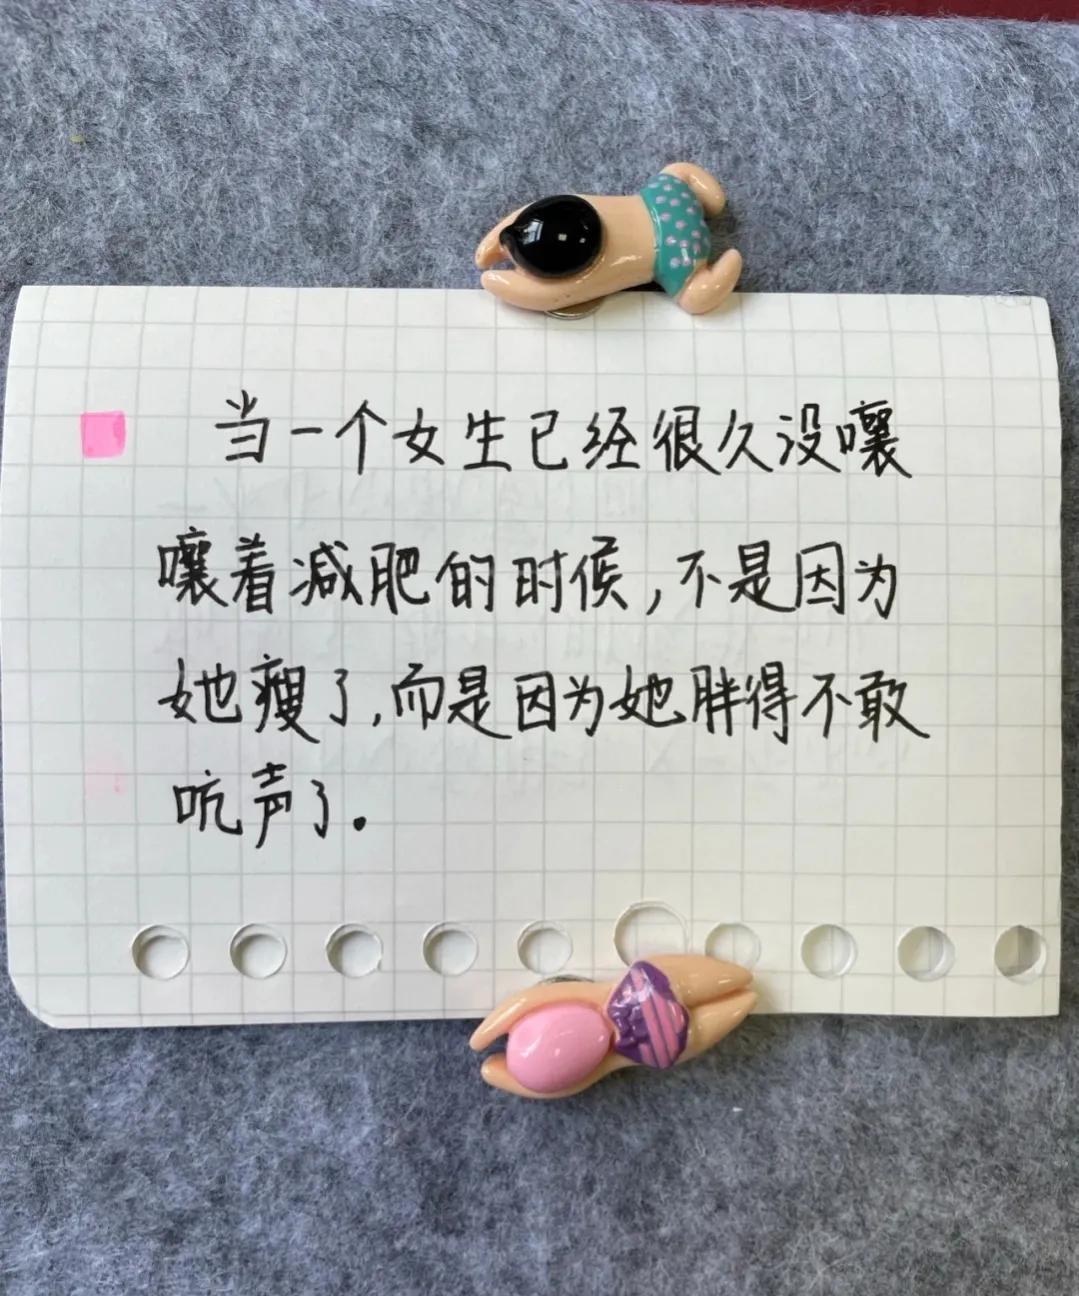 当一个女生已经很久没嚷
嚷着减肥的时候,不是因为
她瘦了,而是因为她胖得不敢
吭声了.